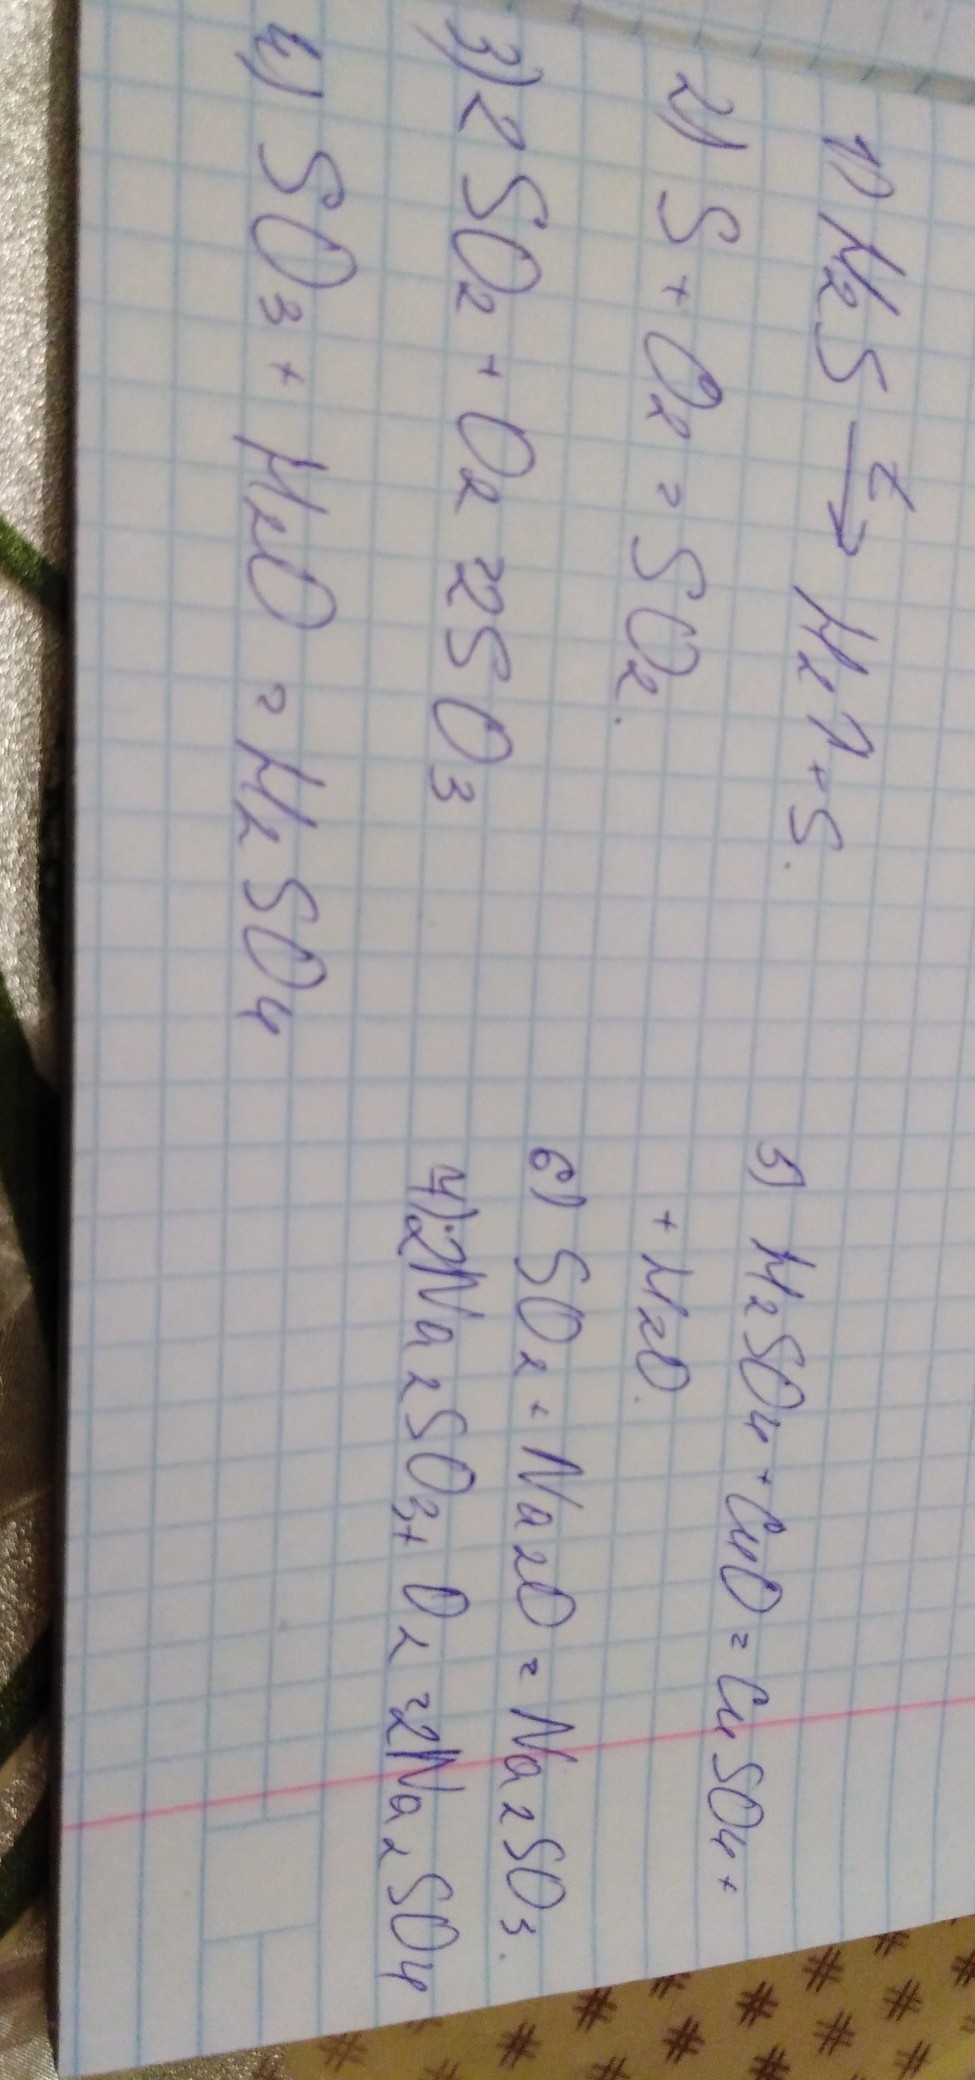 1) H₂S →t H₂↑ + S.
2) S + O₂ = SO₂.
3) 2SO₂ + O₂ = 2SO₃
4) SO₃ + H₂O = H₂SO₄
5) H₂SO₄ + CuO = CuSO₄ +
+ H₂O.
6) SO₂ + Na₂O = Na₂SO₃.
7) 2Na₂SO₃ + O₂ = 2Na₂SO₄